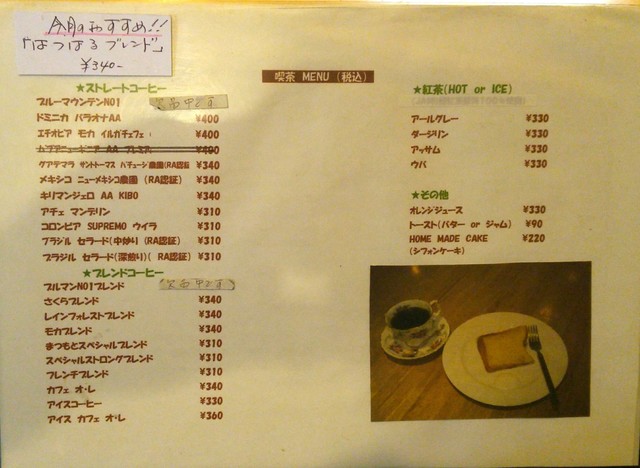 今月のおすすめ!!
「はつはるブレンド」
¥340-
喫茶 MENU (税込)
★ストレートコーヒー
ブルーマウンテンNO1 欠品中です
ドミニカ バラオナAA ¥400
エチオピア モカ イルガチェフェ ¥400
パプアニューギニア AA プレミア ¥400
グアテマラ サントトーマス パチュージ農園(RA認証) ¥340
メキシコ ニューメキシコ農園 (RA認証) ¥340
キリマンジェロ AA KIBO ¥340
アチェ マンデリン ¥310
コロンビア SUPREMO ウイラ ¥310
ブラジル セラード(中炒り) (RA認証) ¥310
ブラジル セラード(深煎り)( RA認証) ¥310
★ブレンドコーヒー
ブルマンNO1ブレンド 欠品中です
さくらブレンド ¥340
レインフォレストブレンド ¥340
モカブレンド ¥340
まつもとスペシャルブレンド ¥310
スペシャルストロングブレンド ¥310
フレンチブレンド ¥310
カフェ オ・レ ¥340
アイスコーヒー ¥330
アイス カフェ オ・レ ¥360
★紅茶(HOT or ICE)
アールグレー ¥330
ダージリン ¥330
アッサム ¥330
ウバ ¥330
★その他
オレンジジュース ¥330
トースト(バター or ジャム) ¥90
HOME MADE CAKE ¥220
(シフォンケーキ)